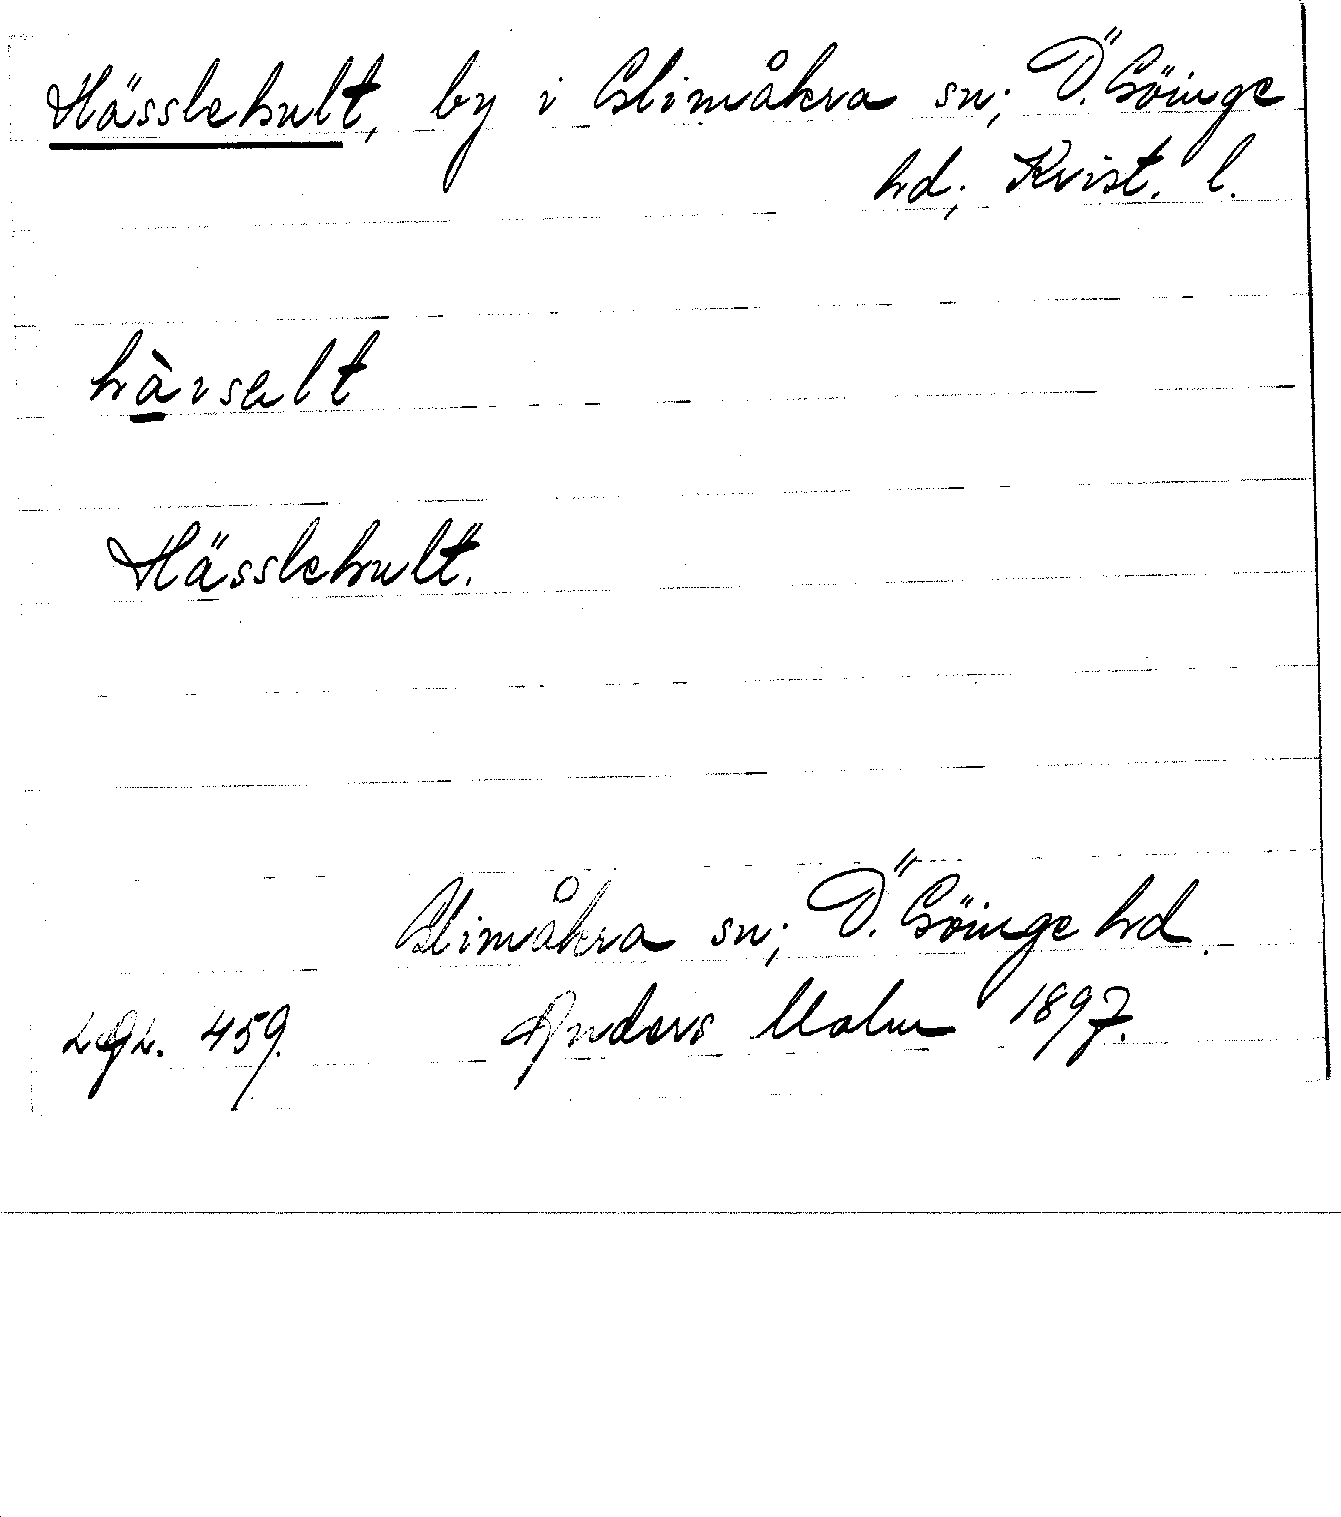 Hässlehult, by i Glimåkra sn; Ö. Göinge
hd; Krist. l.
hàisalt
Hässlehult.
Glimåkra sn; Ö. Göinge hd.
LGL. 459. Anders Malm 1897.